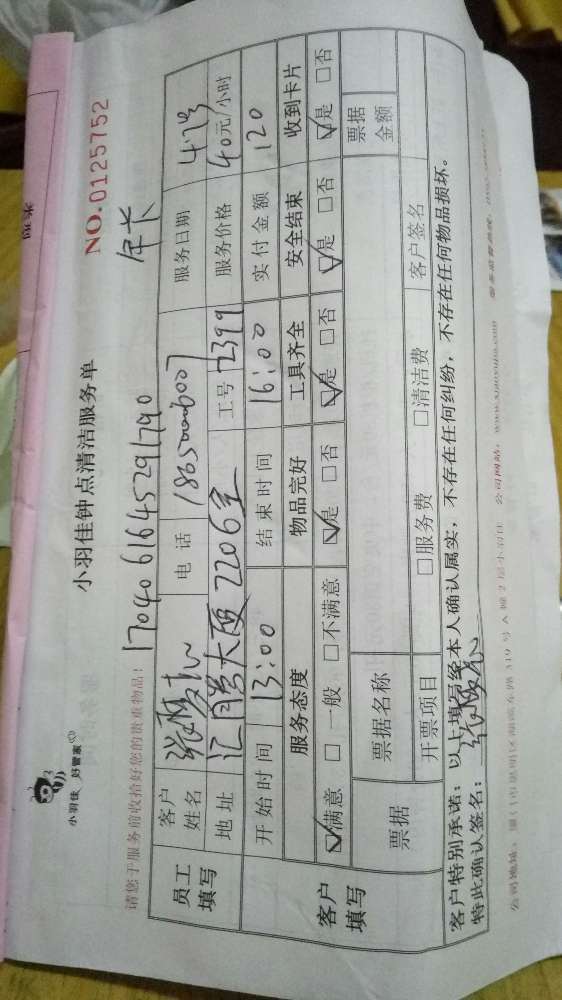 小羽佳 好管家
小羽佳钟点清洁服务单
NO.0125752
请您于服务前收拾好您的贵重物品!
1704061645291790
年卡
员工填写
客户姓名
电话
服务日期 4.7号
地址 汇腾大厦2206室
工号 2399
服务价格 40元/小时
开始时间 13:00 结束时间 16:00 实付金额 120
客户填写
服务态度 物品完好 工具齐全 安全结束 收到卡片
☑满意 □一般 □不满意 ☑是 □否 ☑是 □否 ☑是 □否 ☑是 □否
票据 票据名称 票据金额
开票项目 □服务费 □清洁费 客户签名
客户特别承诺:以上填写经本人确认属实,不存在任何纠纷,不存在任何物品损坏。
特此确认签名: